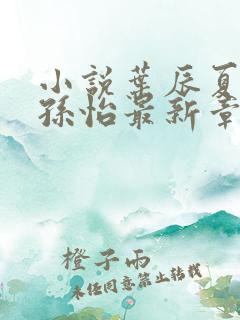 小說葉辰夏
孫怡最新章
橙子雨
未任同意禁止轉載